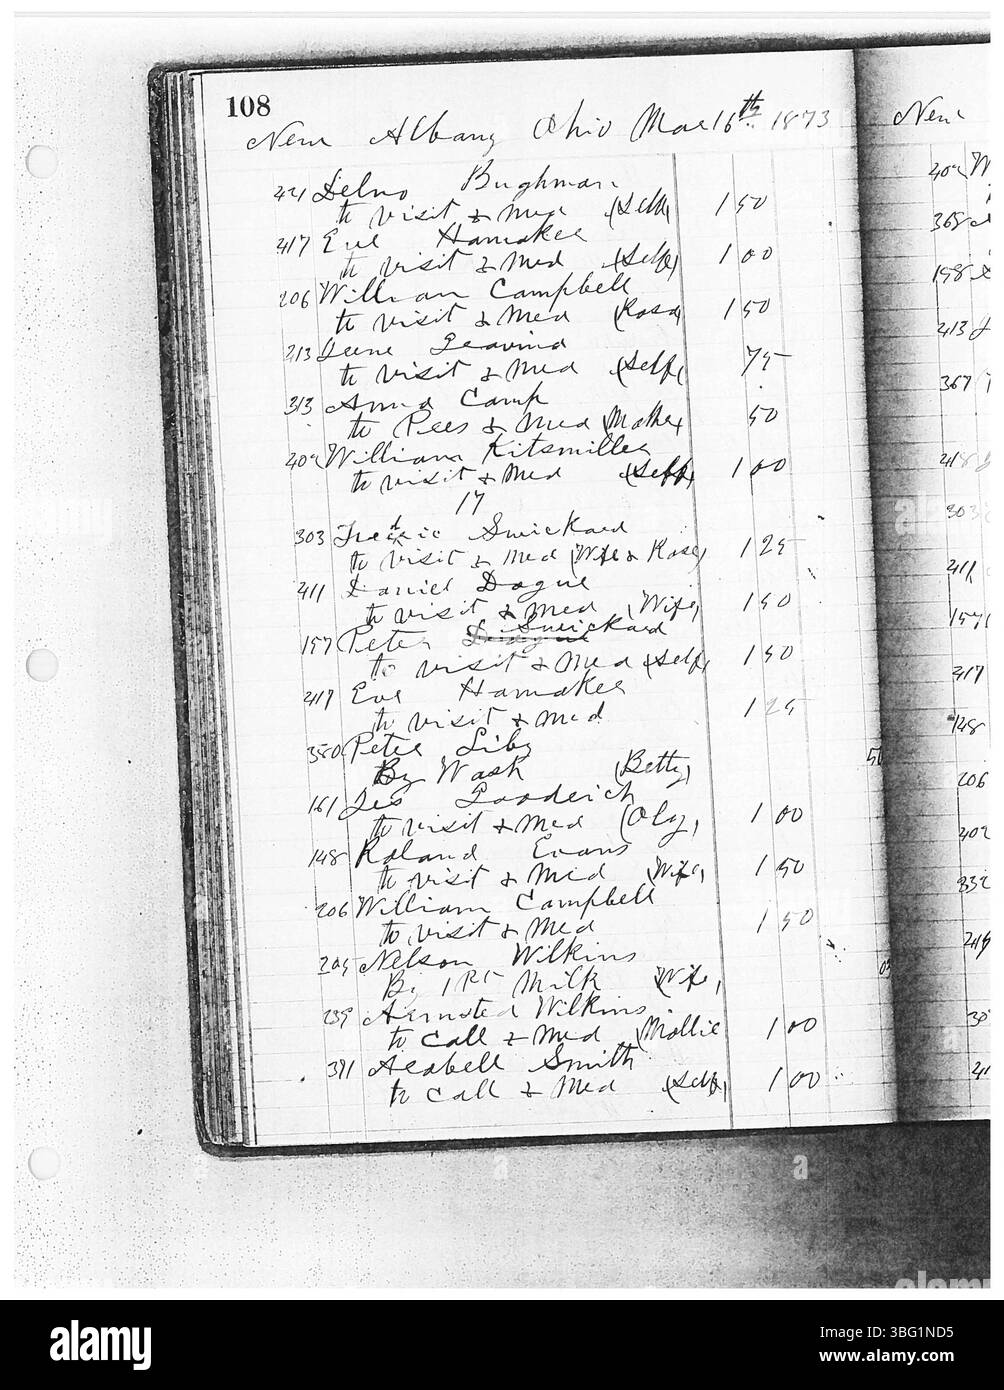 108
New Albany Ohio Mar 16th 1873
New
421 Delno Bughman
to visit & Med (Self) 1 50
417 Eve Hamaker
to visit & Med (Self) 1 00
206 William Campbell
to visit & Med (Rosa) 1 50
213
to visit & Med (Self) 75
313 Anna Camp
to Pees & Med (Mother) 50
402 William Kitsmiller
to visit & Med (Self) 1 00
17
303 Fredric Swickard
to visit & Med (Wife & Rose) 1 25
411 Daniel Dague
to visit & Med (Wife) 1 50
157 Peter Swickard
to visit & Med (Self) 1 50
417 Eve Hamaker
to visit & Med 1 25
380 Peter Liby
By Wash (Betty) 50
161 Jes Gooderich
to visit & Med (Oly) 1 00
148 Roland Evans
to visit & Med (Wife) 1 50
206 William Campbell
to visit & Med 1 50
205 Nelson Wilkins
By 1 Pt Milk (Wife) 05
239 Wilkins
to call & Med (Mollie 1 00
391 Arabell Smith
to call & Med (Self) 1 00
402
368
198
413
367
218
303
411
157
417
148
206
402
332
a
a
alamy
alamy
Image ID: 3BG1ND5
www.alamy.com